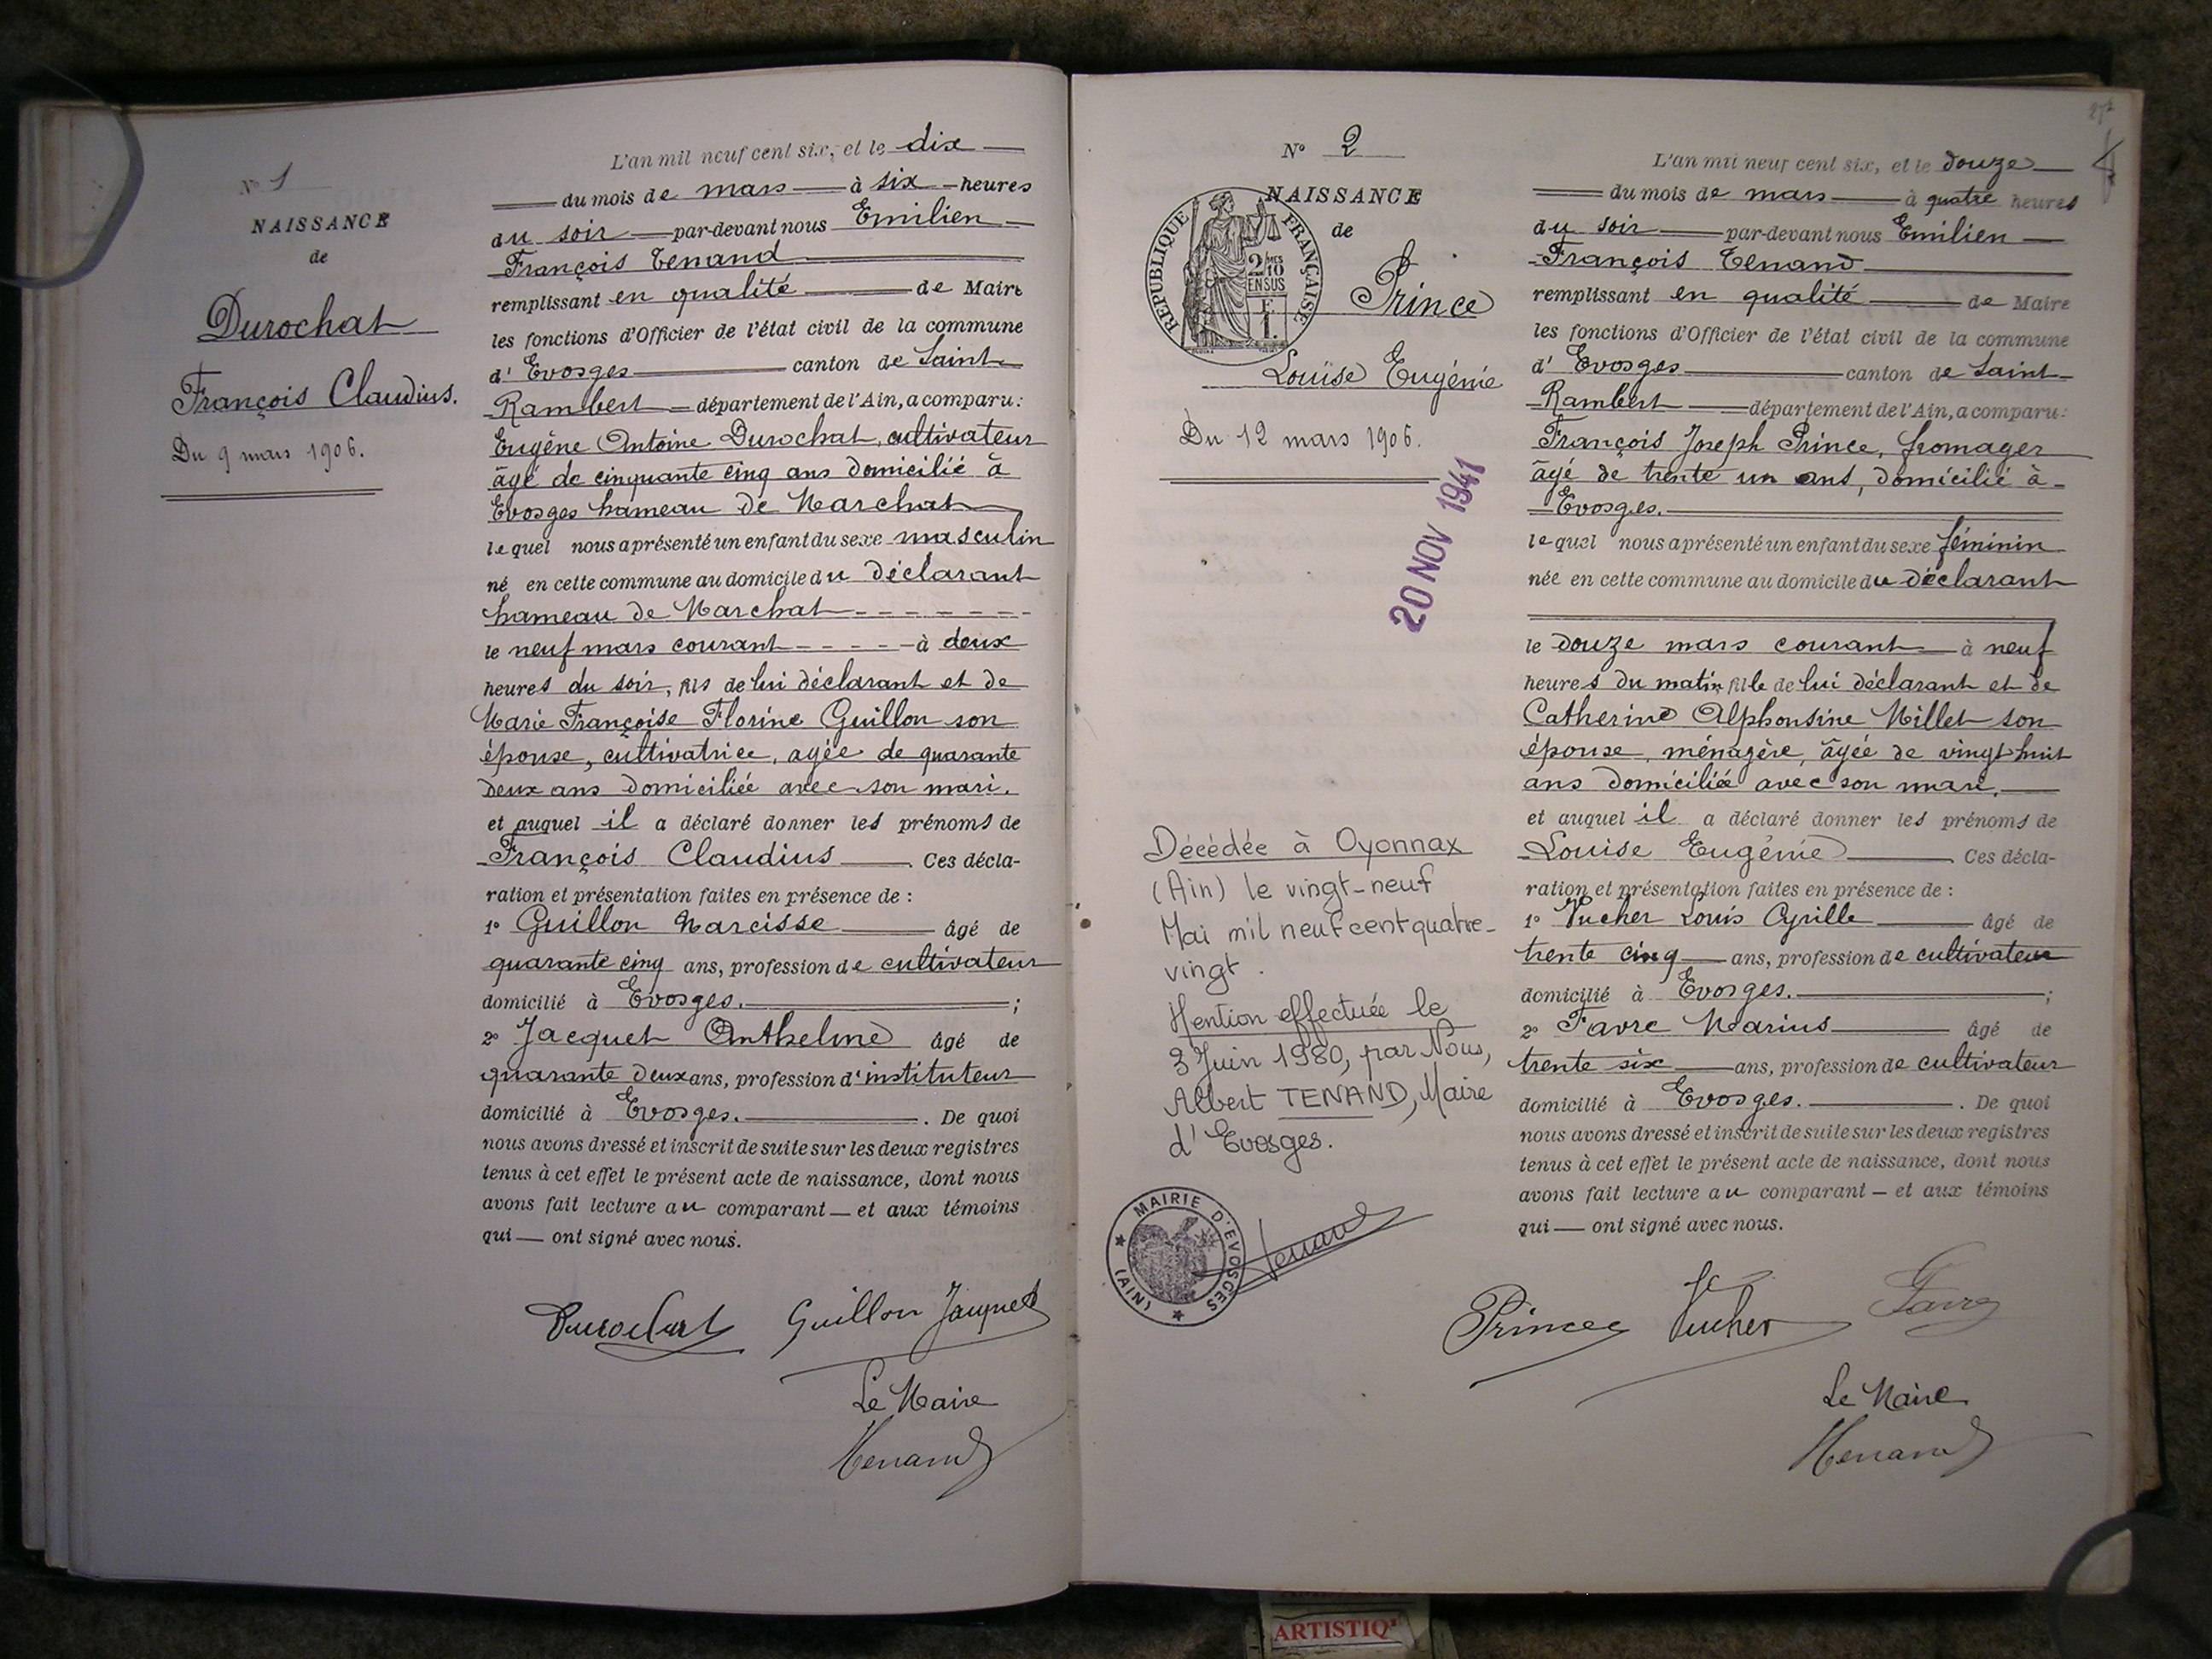 Nº 1
NAISSANCE
de
Durochat
François Claudius.
Du 9 mars 1906.
L'an mil neuf cent six, et le dix
du mois de mars à six heures
du soir par-devant nous Emilien
François Tenand
remplissant en qualité de Maire
les fonctions d'Officier de l'état civil de la commune
d' Evosges canton de Saint
Rambert département de l'Ain, a comparu :
Eugène Antoine Durochat, cultivateur
âgé de cinquante cinq ans domicilié à
Evosges hameau de Marchat
lequel nous a présenté un enfant du sexe masculin
né en cette commune au domicile du déclarant
hameau de Marchat
le neuf mars courant à deux
heures du soir, fils de lui déclarant et de
Marie Françoise Florine Guillon son
épouse, cultivatrice, agée de quarante
deux ans domiciliée avec son mari.
et auquel il a déclaré donner les prénoms de
François Claudius Ces décla-
ration et présentation faites en présence de :
1º Guillon Narcisse âgé de
quarante cinq ans, profession de cultivateur
domicilié à Evosges. ;
2º Jacquet Anthelme âgé de
quarante deux ans, profession d'instituteur
domicilié à Evosges. . De quoi
nous avons dressé et inscrit de suite sur les deux registres
tenus à cet effet le présent acte de naissance, dont nous
avons fait lecture au comparant — et aux témoins
qui — ont signé avec nous.
Durochat Guillon Jacquet
Le Maire
Tenand
Nº 2
NAISSANCE
de
REPUBLIQUE FRANÇAISE
2/10
EN SUS
Prince
Louise Eugénie
Du 12 mars 1906.
20 NOV 1941
Décédée à Oyonnax
(Ain) le vingt-neuf
Mai mil neuf cent quatre-
vingt.
Mention effectuée le
3 Juin 1980, par Nous,
Albert TENAND, Maire
d'Evosges.
MAIRIE D'EVOSGES
(AIN)
Tenand
L'an mil neuf cent six, et le douze
du mois de mars à quatre heures
du soir par-devant nous Emilien
François Tenand
remplissant en qualité de Maire
les fonctions d'Officier de l'état civil de la commune
d' Evosges canton de Saint
Rambert département de l'Ain, a comparu :
François Joseph Prince, fromager
âgé de trente un ans, domicilié à
Evosges.
lequel nous a présenté un enfant du sexe féminin
née en cette commune au domicile du déclarant
le douze mars courant à neuf
heures du matin fille de lui déclarant et de
Catherine Alphonsine Millet son
épouse, ménagère, âgée de vingt-huit
ans domiciliée avec son mari.
et auquel il a déclaré donner les prénoms de
Louise Eugénie Ces décla-
ration et présentation faites en présence de :
1º Vucher Louis Cyrille âgé de
trente cinq ans, profession de cultivateur
domicilié à Evosges. ;
2º Favre Marius âgé de
trente six ans, profession de cultivateur
domicilié à Evosges. . De quoi
nous avons dressé et inscrit de suite sur les deux registres
tenus à cet effet le présent acte de naissance, dont nous
avons fait lecture au comparant — et aux témoins
qui — ont signé avec nous.
Prince Vucher Favre
Le Maire
Tenand
ARTISTIQ